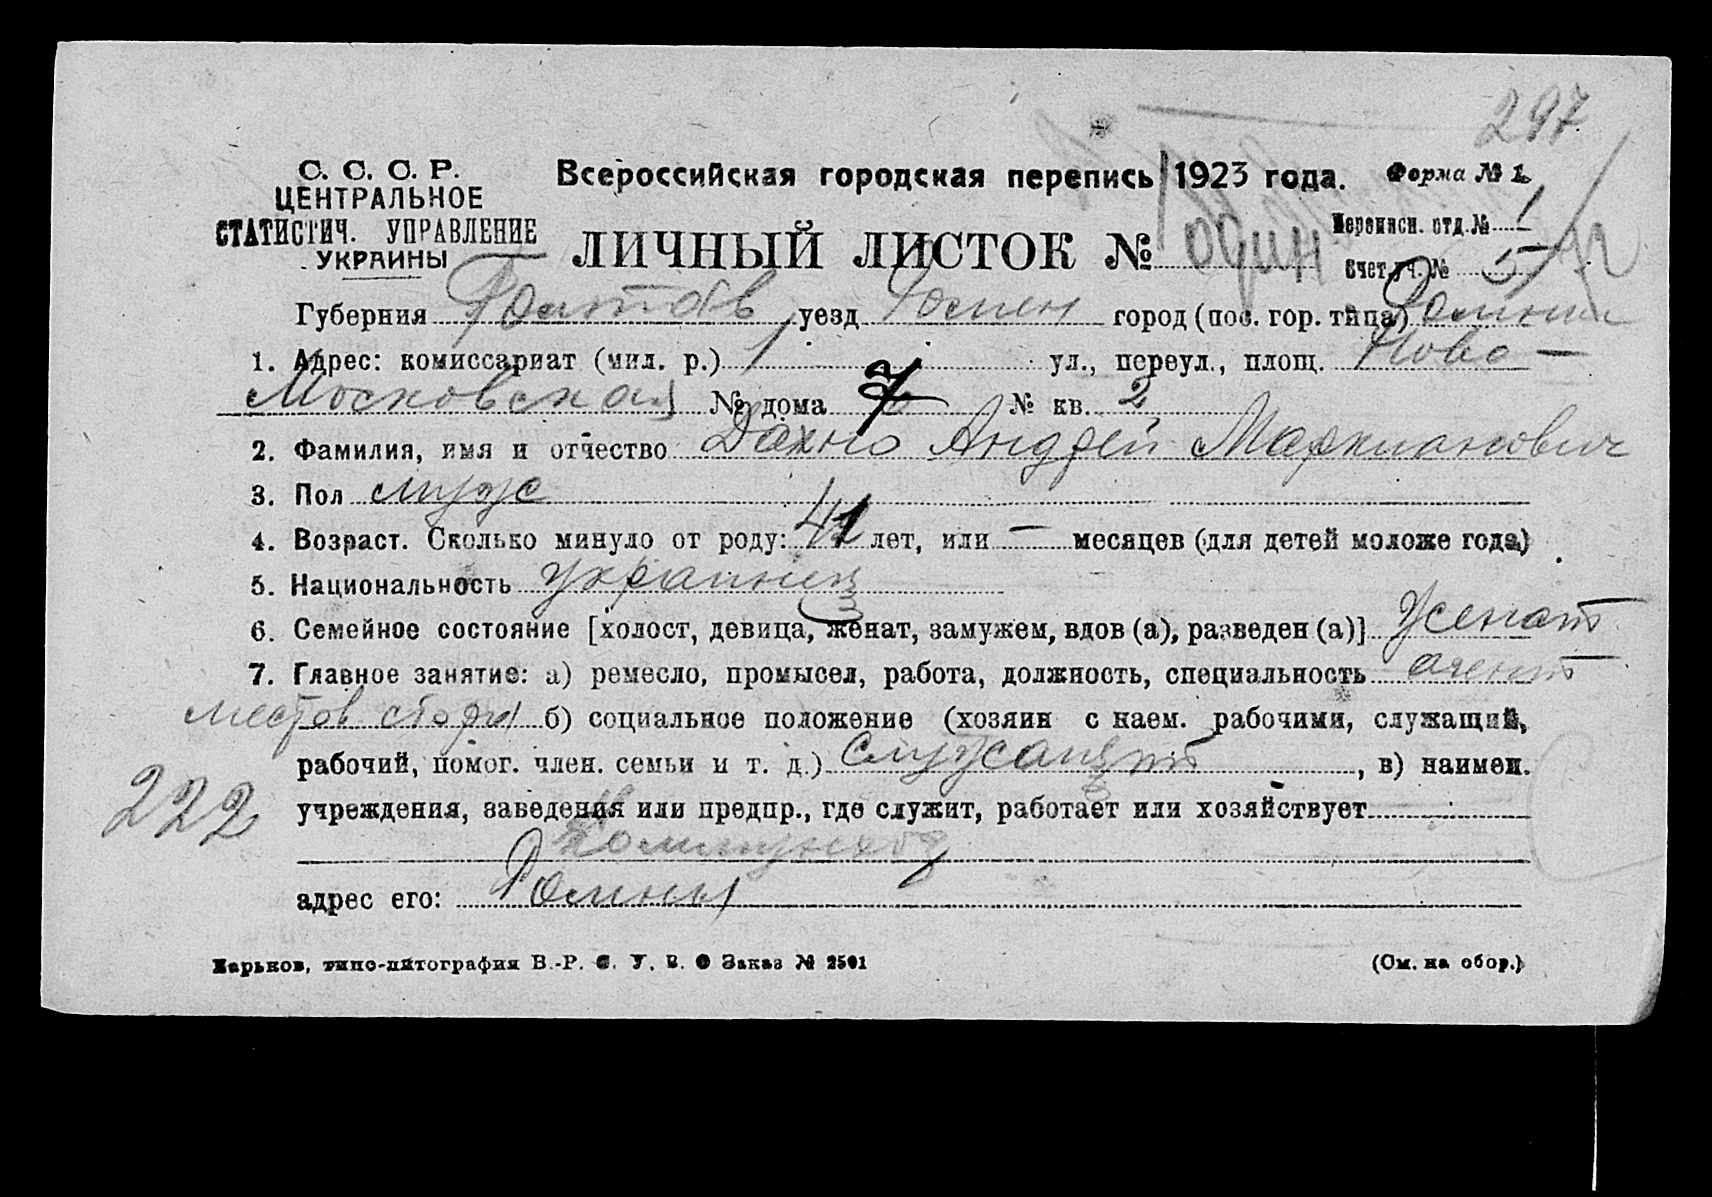 297
С. С. С. Р.
ЦЕНТРАЛЬНОЕ
СТАТИСТИЧ. УПРАВЛЕНИЕ
УКРАИНЫ
Всероссийская городская перепись 1923 года.
Форма № 1.
ЛИЧНЫЙ ЛИСТОК № один
Переписн. отд. № 1
Счет. уч. № 5
Губерния Полтав уезд Ромен город (пос. гор. типа) Ромны
1. Адрес: комиссариат (мил. р.) 1 ул., переул., площ. Ново-
Московская № дома 7 № кв. 2
2. Фамилия, имя и отчество Дахно Андрей Маркианович
3. Пол муж
4. Возраст. Сколько минуло от роду: 41 лет, или — месяцев (для детей моложе года)
5. Национальность украинец
6. Семейное состояние [холост, девица, женат, замужем, вдов (а), разведен (а)] женат
7. Главное занятие: а) ремесло, промысел, работа, должность, специальность агент
б) социальное положение (хозяин с наем. рабочими, служащий,
рабочий, помог. член. семьи и т. д.) служащий, в) наимен.
222
учреждения, заведения или предпр., где служит, работает или хозяйствует
Коммунхоз
адрес его: Ромны
Харьков, типо-литография В.-Р. С. У. В. О Заказ № 2501
(См. на обор.)